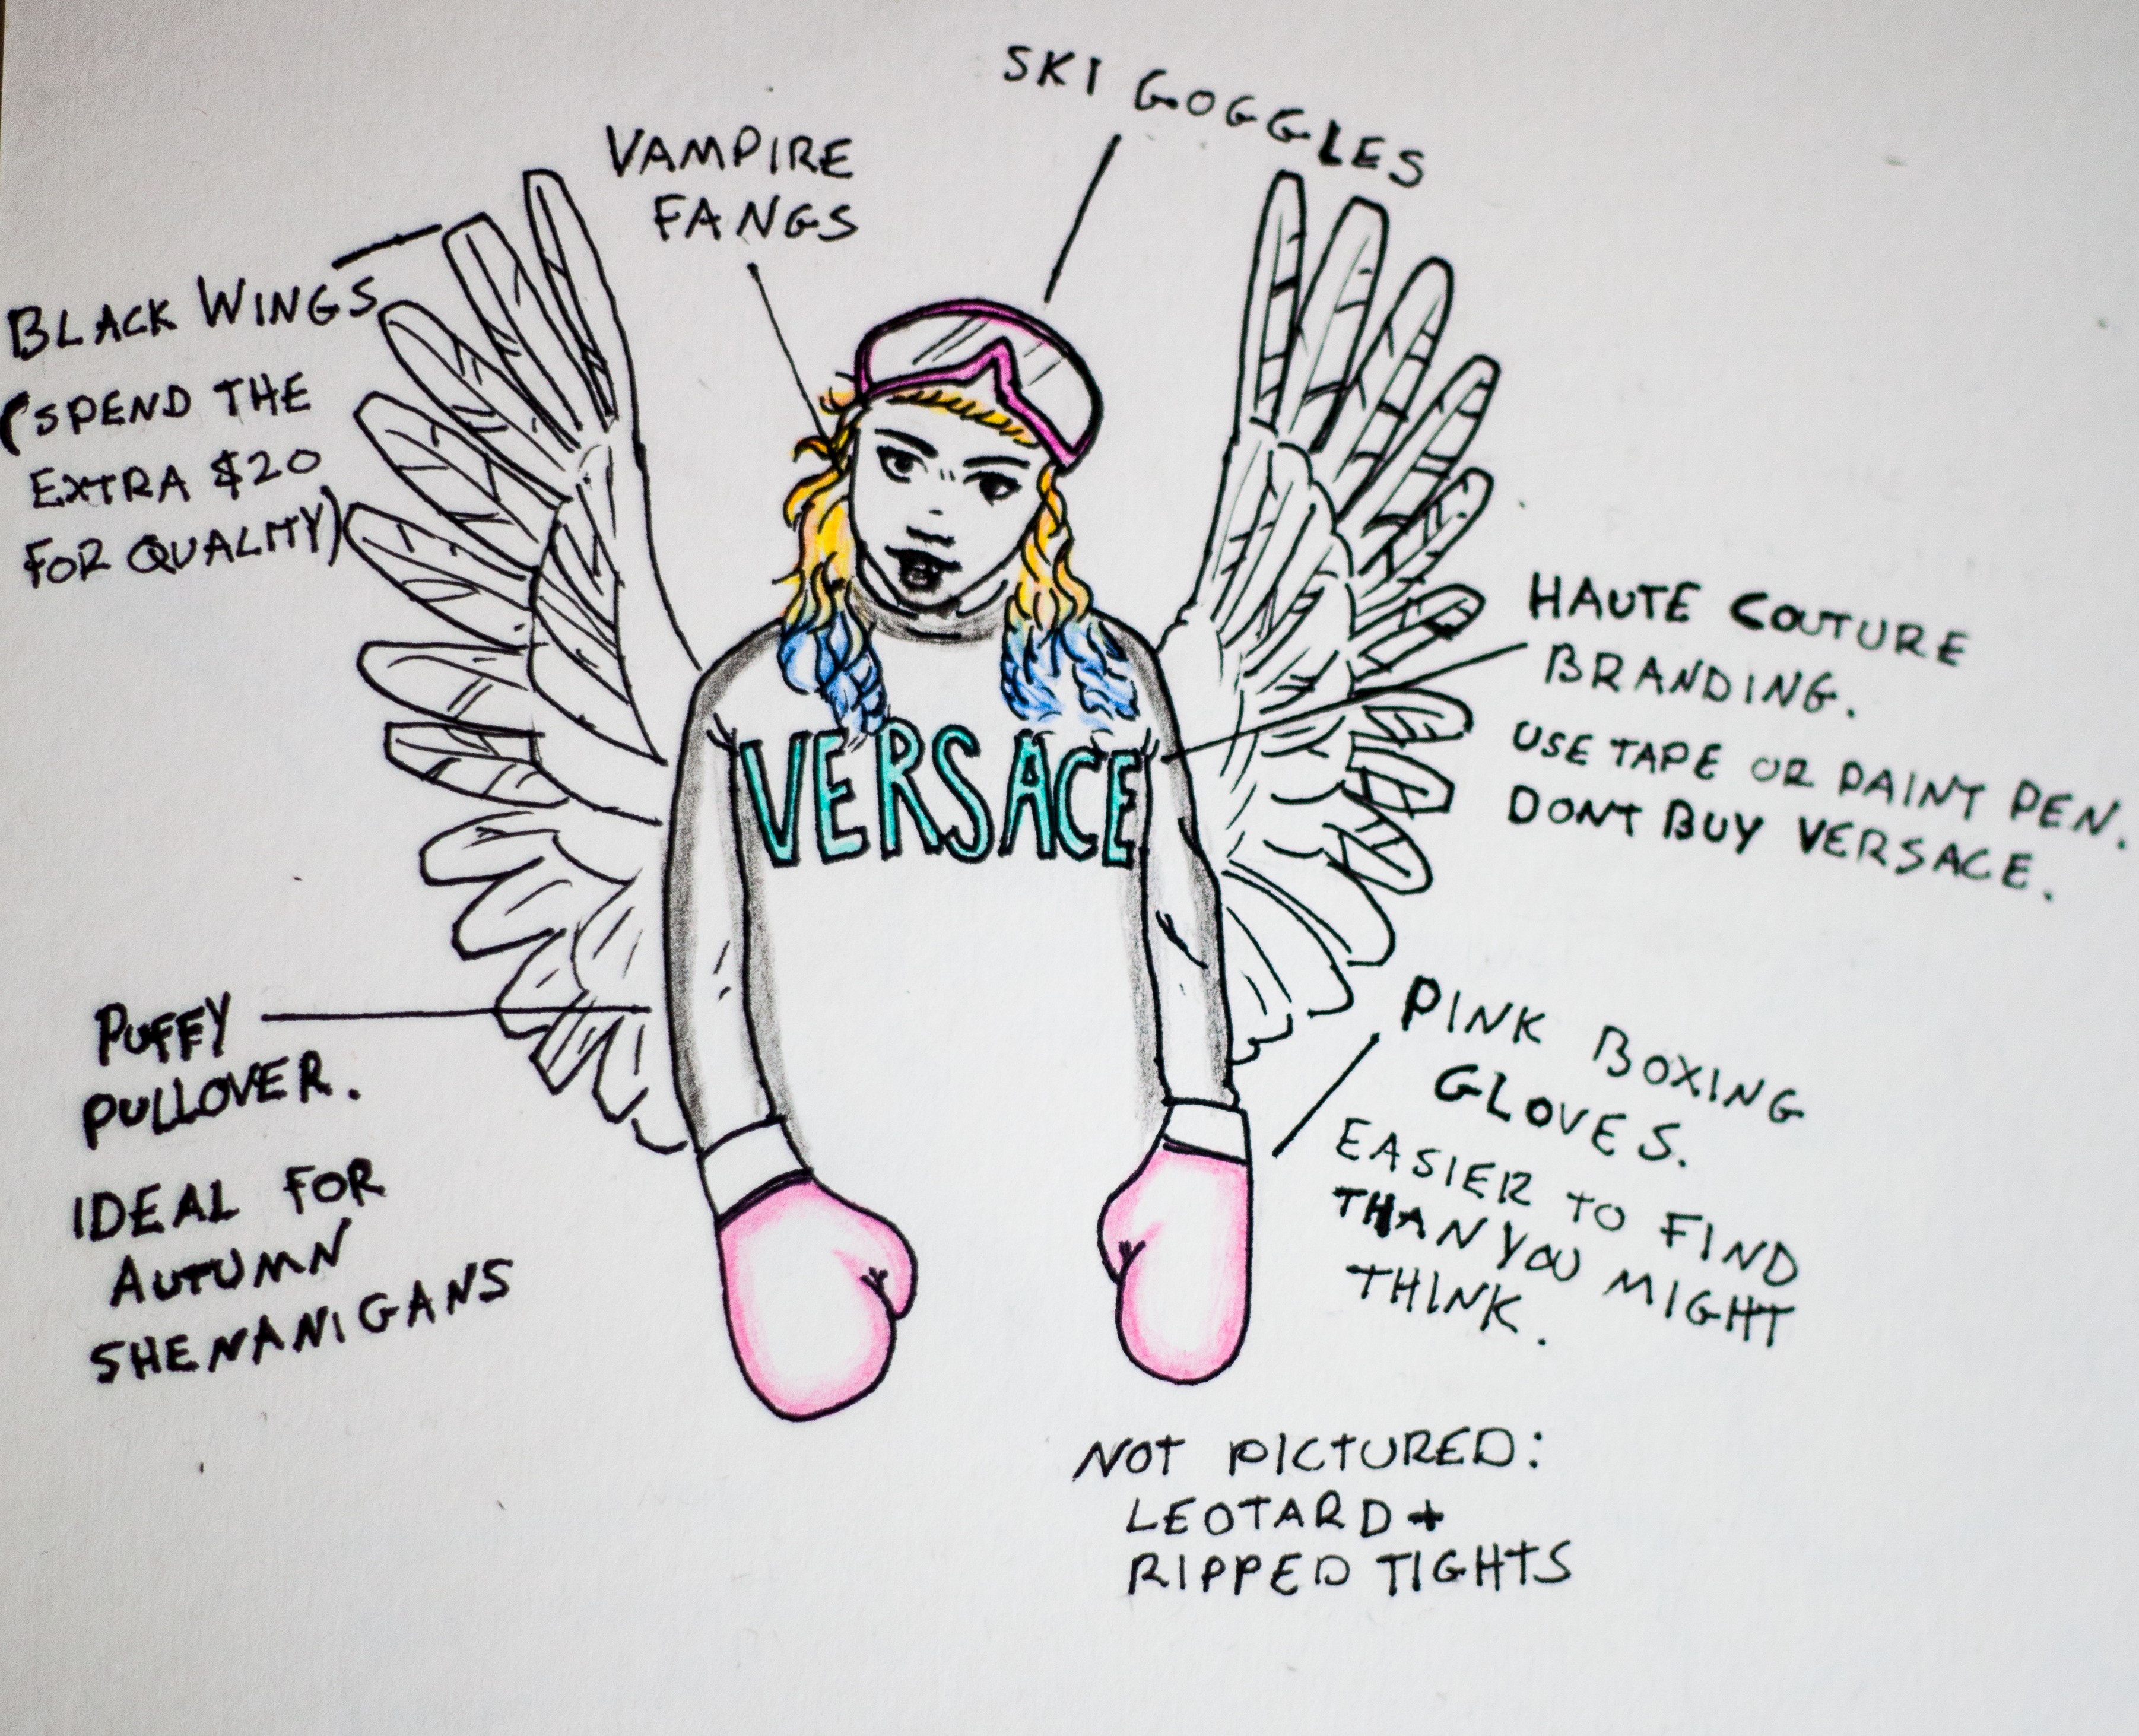 SKI GOGGLES
VAMPIRE
FANGS
BLACK WINGS
(SPEND THE
EXTRA $20
FOR QUALITY)
HAUTE COUTURE
BRANDING.
USE TAPE OR PAINT PEN.
DONT BUY VERSACE.
VERSACE
PUFFY
PULLOVER.
IDEAL FOR
AUTUMN
SHENANIGANS
PINK BOXING
GLOVES.
EASIER TO FIND
THAN YOU MIGHT
THINK.
NOT PICTURED:
LEOTARD +
RIPPED TIGHTS